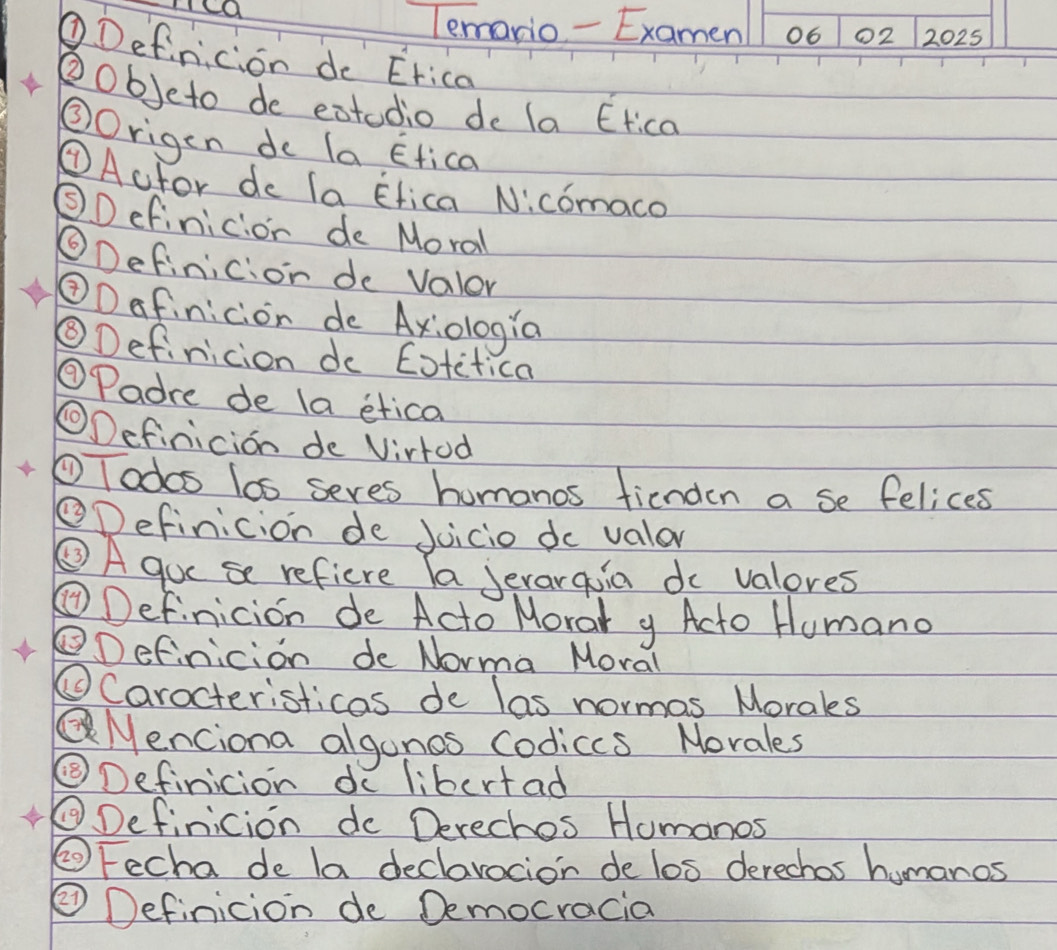 Temario - Examen 06 02 2025
① Definición de Ética
② Objeto de estudio de la Ética
③ Origen de la Ética
④ Autor de la Ética Nicómaco
⑤ Definición de Moral
⑥ Definición de Valor
⑦ Dafinición de Axiología
⑧ Definicion de Estética
⑨ Padre de la ética
⑩ Definición de Virtud
⑪ Todos los seres humanos tienden a se felices
⑫ Definición de Juicio de valor
⑬ A que se refiere la jerarquía de valores
⑭ Definición de Acto Moral y Acto Humano
⑮ Definición de Norma Moral
⑯ Caracteristicas de las normas Morales
⑰ Menciona algunos Codices Morales
⑱ Definición de libertad
⑲ Definición de Derechos Humanos
⑳ Fecha de la declaración de los derechos humanos
㉑ Definición de Democracia